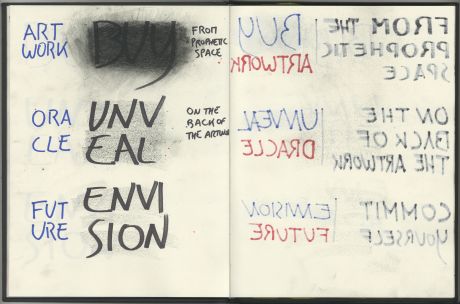 ART
WORK
BUY
FROM
PROPHETIC
SPACE
ORA
CLE
UNV
EAL
ON THE
BACK OF
THE ARTWORK
FUT
URE
ENVI
SION
BUY
ARTWORK
FROM THE
PROPHETIC
SPACE
UNVEAL
ORACLE
ON THE
BACK OF
THE ARTWORK
ENVISION
FUTURE
COMMIT
YOURSELF